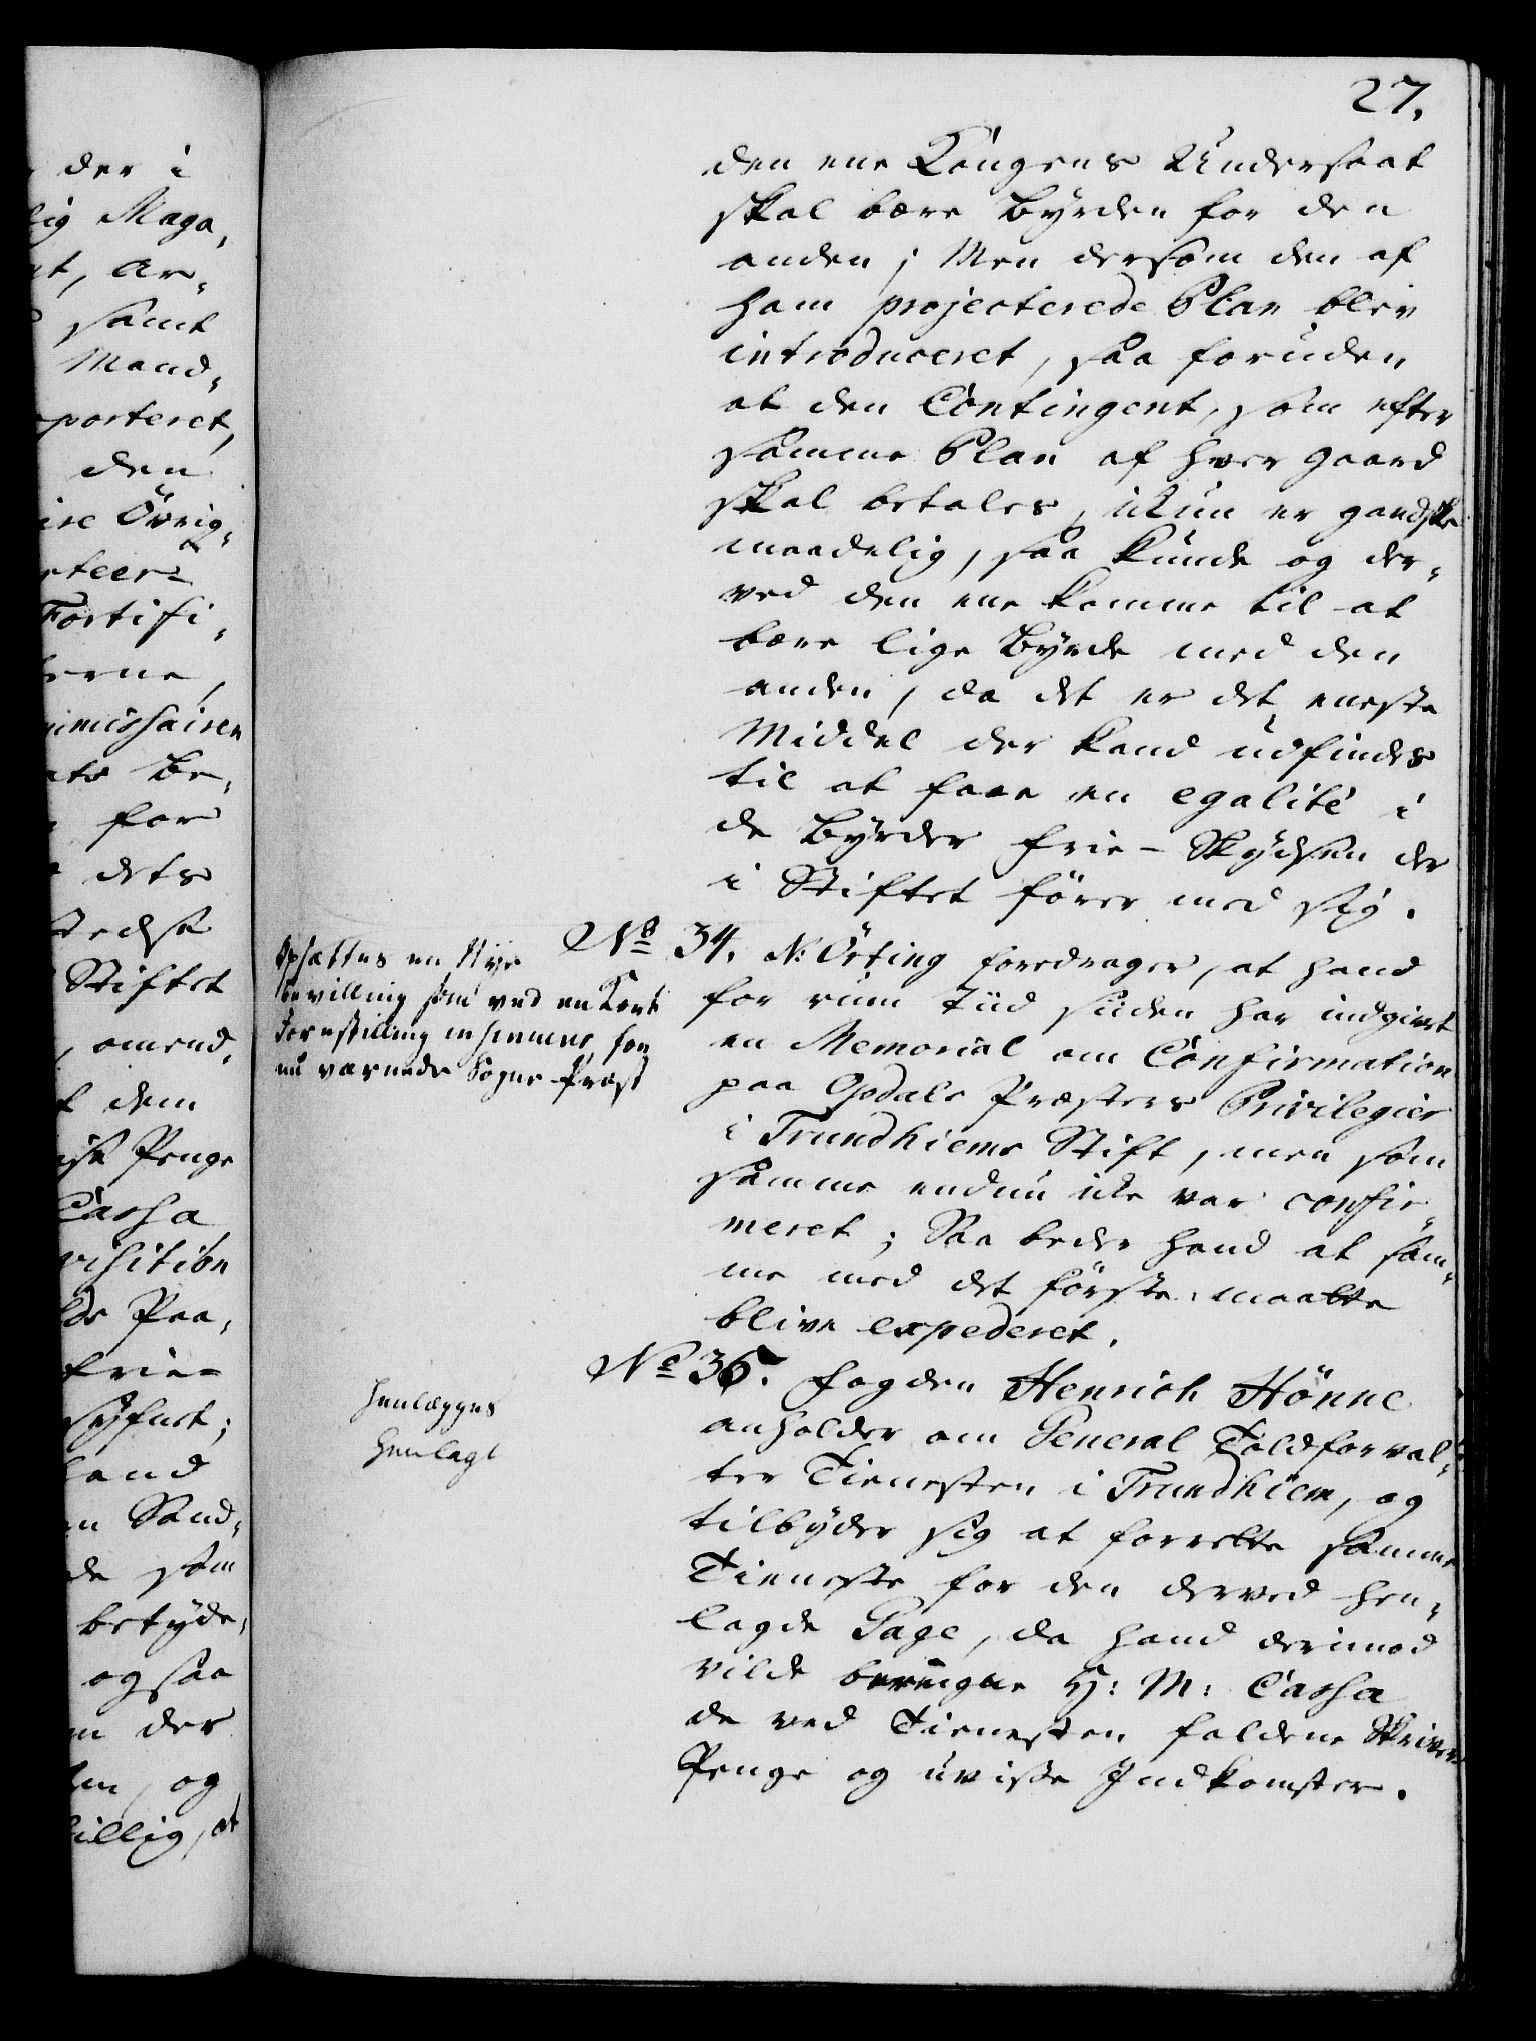 27.
den ene Kongens Undersaat
skal bære Byrden for den
anden; Men dersom den af
ham projecterede Plan blev
introduceret, saa foruden
at den Contingent, som efter
samme Plan af hver Gaard
skal betales, ikun er gandske
maadelig, saa kunde og der-
ved den ene komme til at
bære lige Byrde med den
anden, da det er det eneste
Middel der kand udfindes
til at faae en egalité i
de Byrder frie-Skydsen der
i Stiftet fører med sig.
No 34. N: Örting foredrager, at hand
for rum Tiid siden har indgivet
en Memorial om Confirmation
paa Opdals Præsters Privilegier
i Trundhiems Stift, men som
samme endnu icke var confir-
meret; Saa beder hand at sam-
me med det første maatte
blive expederet.
Opsættes en Nye
Bevilling som ved en Kort
Forestilling indsendes, for
nu værende Sogne-Præst
No 35. Fogden Henrich Hönne
anholder om General Toldforval-
ter Tienesten i Trundhiem, og
tilbyder sig at forrette samme
Tieneste for den derved hen-
lagde Gage, da hand derimod
vilde beregne H: M: Cassa
de ved Tienesten faldene Skriver
Penge og uvisse Indkomster.
Henlægges
Henlagt
der i
lig Maga,
et, Ar-
samt
Mand-
porteret,
den
ise Övrig-
rteer
Fortifi-
erne,
mmissairen
ets Be-
for
dets
stedse
Stiftet
, omend-
t dem
isse Penge
Cassa
visition
lds Paa,
frie-
syfnet;
hand
en Sand-
de som
betyde,
ogsaa
m der
den, og
billig, at